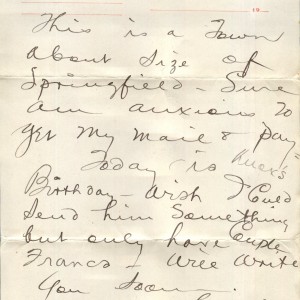 This is a Town
about size of
Springfield - Sure
am anxious to
get my mail & pay.
Today is Buck's
Birthday - Wish I Could
Send him Something
but only have Couple
Francs - Will Write
You Soon.